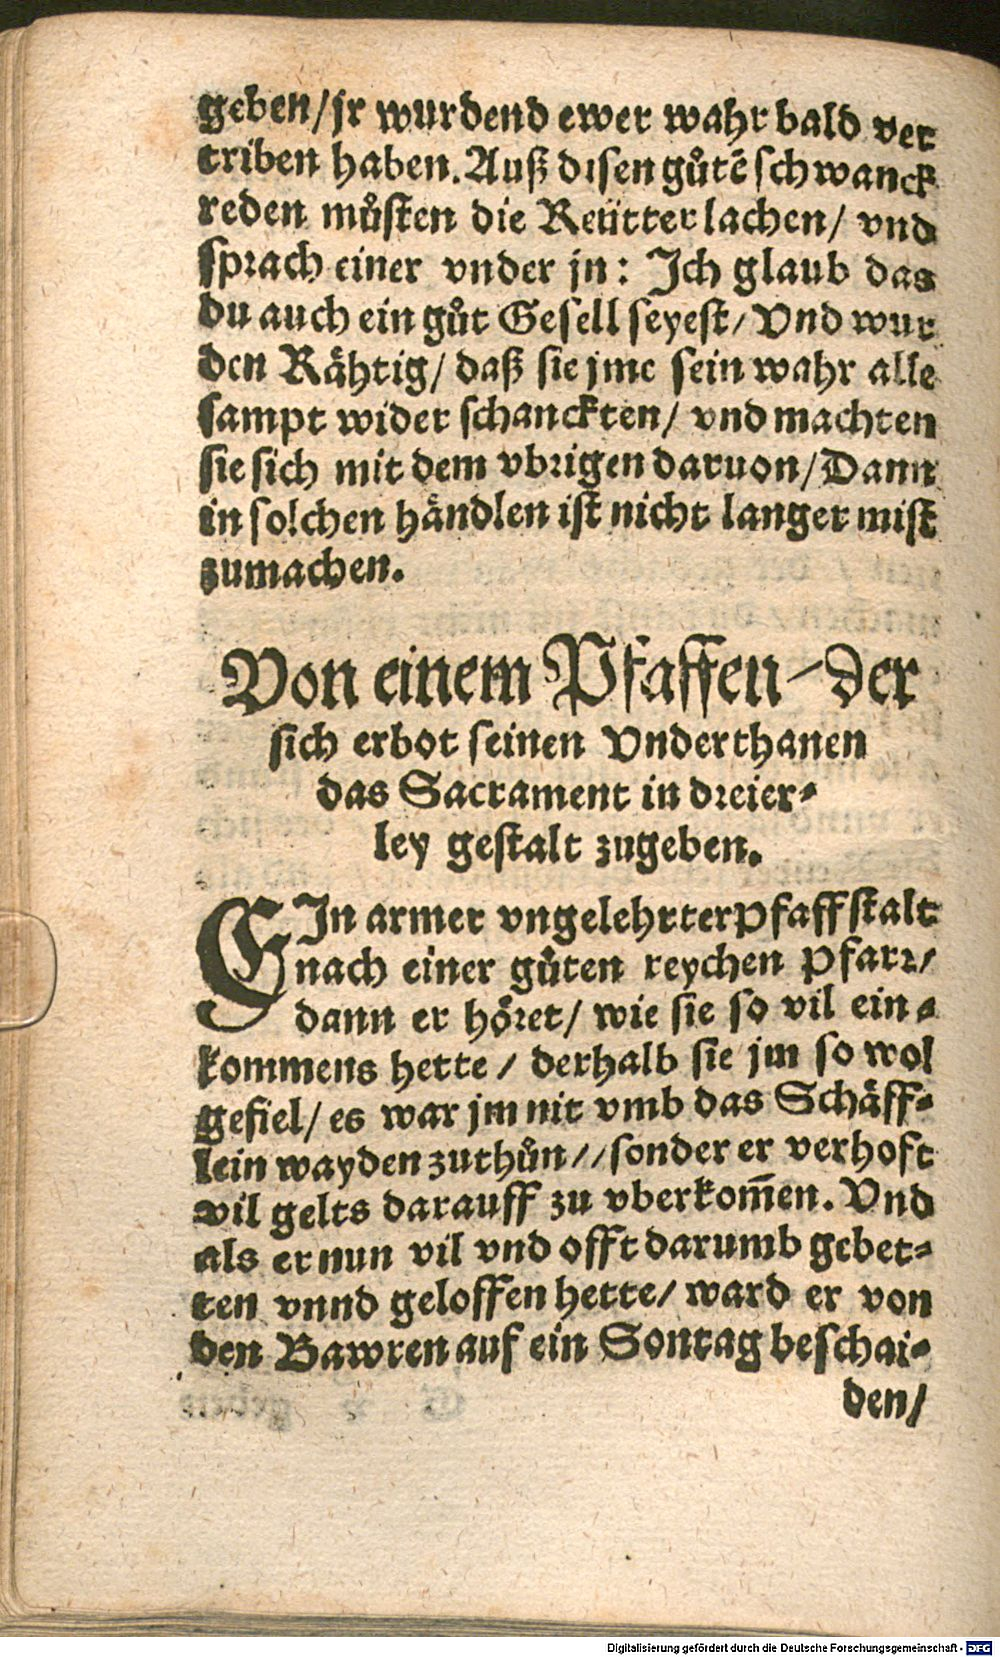 geben/ jr wurdend ewer wahr bald ver
triben haben. Auß disen gůtẽ schwanck
reden můsten die Reütter lachen/ vnd
sprach einer vnder jn: Ich glaub das
du auch ein gůt Gesell seyest/ Vnd wur
den Rähtig/ daß sie jme sein wahr alle
sampt wider schanckten/ vnd machten
sie sich mit dem vbrigen daruon/ Dann
in solchen händlen ist nicht langer mist
zumachen.
Von einem Pfaffen/ der
sich erbot seinen Vnderthanen
das Sacrament in dreier-
ley gestalt zugeben.
EIn armer vngelehrter Pfaff stalt
nach einer gůten reychen Pfarr/
dann er höret/ wie sie so vil ein-
kommens hette / derhalb sie jm so wol
gefiel/ es war jm nit vmb das Schäff-
lein wayden zuthůn// sonder er verhoft
vil gelts darauff zu vberkom̃en. Vnd
als er nun vil vnd offt darumb gebet-
ten vnnd geloffen hette/ ward er von
den Bawren auf ein Sontag beschai-
den/
Digitalisierung gefördert durch die Deutsche Forschungsgemeinschaft - DFG